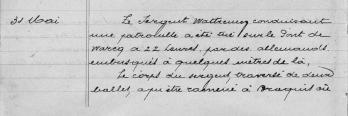 31 Mai
Le Sergent Wattrelucq conduisant
une patrouille a été tué sur le Pont de
Warcq à 22 heures, par des allemands,
embusqués à quelques mètres de là,
Le corps du sergent, traversé de deux
balles, a pu être ramené à Braquis où